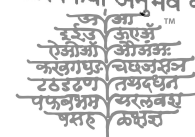 अनुभव
अ आ ™
इईउ
ऐओऑ औअंअः
कखगघङ चछजझञ
टठडढण तथदधन
पफबभम यरलवश
षसह ळक्षज्ञ